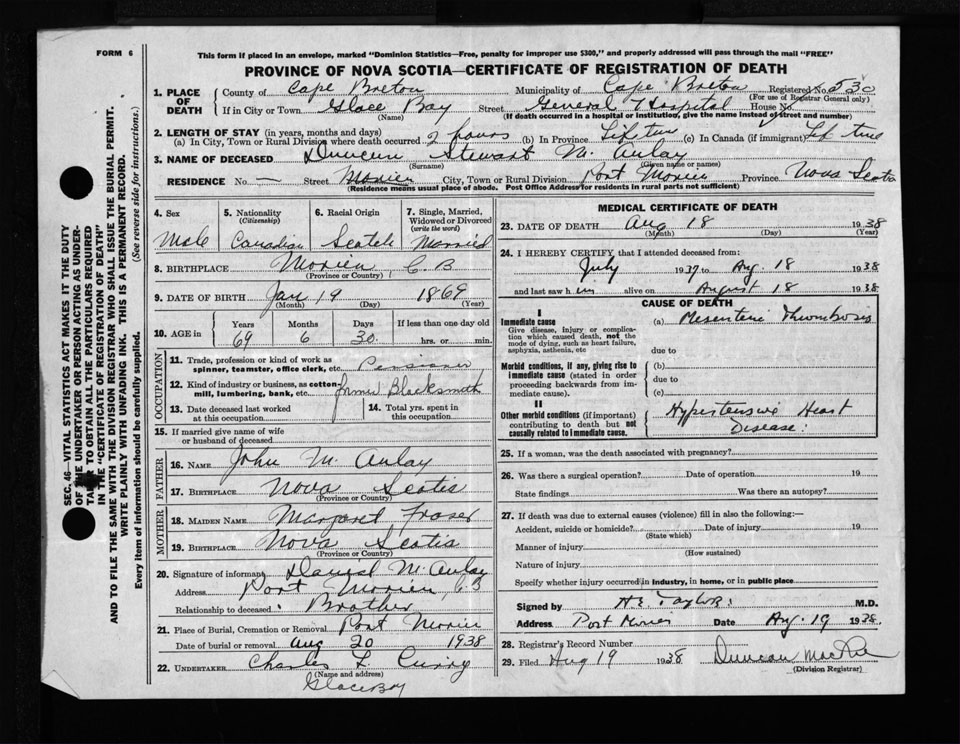 FORM 6
This form if placed in an envelope, marked "Dominion Statistics—Free, penalty for improper use $300," and properly addressed will pass through the mail "FREE"
PROVINCE OF NOVA SCOTIA—CERTIFICATE OF REGISTRATION OF DEATH
1. PLACE OF DEATH County of Cape Breton Municipality of Cape Breton Registered No. 530
(For use of Registrar General only)
If in City or Town Glace Bay Street General Hospital House No.
(Name) (If death occurred in a hospital or institution, give the name instead of street and number)
2. LENGTH OF STAY (in years, months and days)
(a) In City, Town or Rural Division where death occurred 2 hours (b) In Province Lif time (c) In Canada (if immigrant) Lif time
3. NAME OF DECEASED Duncan Stewart McAulay
(Surname) (Given name or names)
RESIDENCE No. — Street Morien City, Town or Rural Division Port Morien Province Nova Scotia
(Residence means usual place of abode. Post Office Address for residents in rural parts not sufficient)
4. Sex Male
5. Nationality (Citizenship) Canadian
6. Racial Origin Scotch
7. Single, Married, Widowed or Divorced (write the word) Married
8. BIRTHPLACE Morien, C B
(Province or Country)
9. DATE OF BIRTH Jan 19 1869
(Month) (Day) (Year)
10. AGE in Years 69 Months 6 Days 30 If less than one day old hrs. or min.
OCCUPATION
11. Trade, profession or kind of work as spinner, teamster, office clerk, etc. Pensioner
12. Kind of industry or business, as cotton-mill, lumbering, bank, etc. Former Blacksmith
13. Date deceased last worked at this occupation
14. Total yrs. spent in this occupation
15. If married give name of wife or husband of deceased
FATHER
16. NAME John McAulay
17. BIRTHPLACE Nova Scotia
(Province or Country)
MOTHER
18. MAIDEN NAME Margaret Fraser
19. BIRTHPLACE Nova Scotia
(Province or Country)
20. Signature of informant Daniel McAulay
Address Port Morien, C B
Relationship to deceased Brother
21. Place of Burial, Cremation or Removal Port Morien
Date of burial or removal Aug 20 1938
22. UNDERTAKER Charles L Curry
(Name and address)
Glace Bay
MEDICAL CERTIFICATE OF DEATH
23. DATE OF DEATH Aug 18 1938
(Month) (Day) (Year)
24. I HEREBY CERTIFY that I attended deceased from:
July 1937 to Aug. 18 1938
and last saw him alive on August 18 1938
CAUSE OF DEATH
I
Immediate cause (a) Mesenteric Thrombosis
Give disease, injury or complication which caused death, not the mode of dying, such as heart failure, asphyxia, asthenia, etc
due to
Morbid conditions, if any, giving rise to immediate cause (stated in order proceeding backwards from immediate cause). (b)
due to
(c)
II
Other morbid conditions (if important) contributing to death but not causally related to immediate cause. Hypertensive Heart Disease.
25. If a woman, was the death associated with pregnancy?
26. Was there a surgical operation? Date of operation 19
State findings Was there an autopsy?
27. If death was due to external causes (violence) fill in also the following:—
Accident, suicide or homicide? Date of injury 19
(State which)
Manner of injury
(How sustained)
Nature of injury
Specify whether injury occurred in industry, in home, or in public place
Signed by H E Taylor M.D.
Address Port Morien Date Aug. 19 1938.
28. Registrar's Record Number
29. Filed Aug 19 1938 Duncan
(Division Registrar)
SEC. 46—VITAL STATISTICS ACT MAKES IT THE DUTY
OF THE UNDERTAKER OR PERSON ACTING AS UNDER-
TAKER TO OBTAIN ALL THE PARTICULARS REQUIRED
IN THE "CERTIFICATE OF REGISTRATION OF DEATH"
AND TO FILE THE SAME WITH THE DIVISION REGISTRAR WHO SHALL ISSUE THE BURIAL PERMIT.
WRITE PLAINLY WITH UNFADING INK. THIS IS A PERMANENT RECORD.
Every item of information should be carefully supplied. (See reverse side for instructions.)